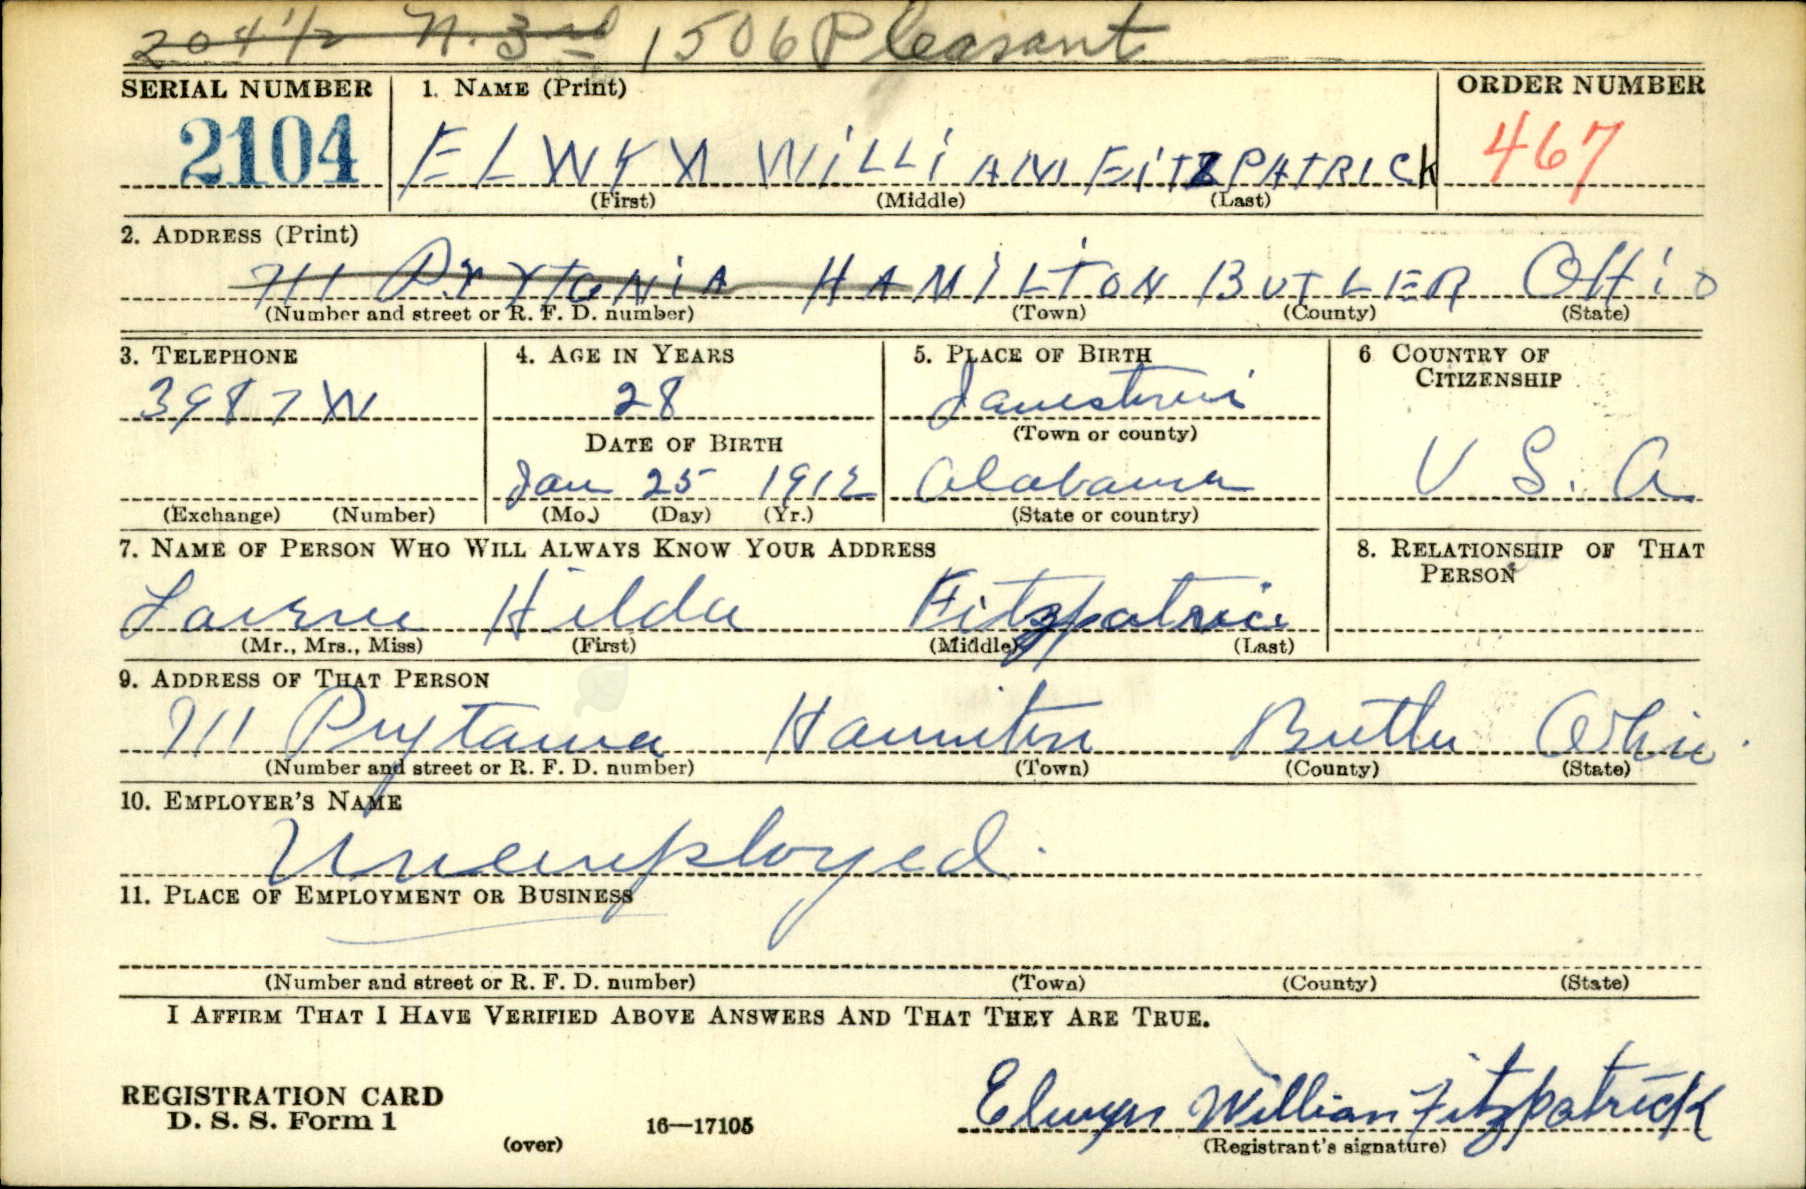 204 1/2 N. 3rd 1506 Pleasant
SERIAL NUMBER 1. NAME (Print) ORDER NUMBER
2104 ELWYN WILLIAM FITZPATRICK 467
(First) (Middle) (Last)
2. ADDRESS (Print)
711 PRYTONIA HAMILTON BUTLER OHIO
(Number and street or R. F. D. number) (Town) (County) (State)
3. TELEPHONE 4. AGE IN YEARS 5. PLACE OF BIRTH 6 COUNTRY OF
CITIZENSHIP
3987W 28
DATE OF BIRTH (Town or county)
Jan 25 1912 Alabama U S. A
(Exchange) (Number) (Mo.) (Day) (Yr.) (State or country)
7. NAME OF PERSON WHO WILL ALWAYS KNOW YOUR ADDRESS 8. RELATIONSHIP OF THAT
PERSON
Hilda Fitzpatric
(Mr., Mrs., Miss) (First) (Middle) (Last)
9. ADDRESS OF THAT PERSON
711 Prytania Hamilton Butler Ohio
(Number and street or R. F. D. number) (Town) (County) (State)
10. EMPLOYER'S NAME
Unemployed.
11. PLACE OF EMPLOYMENT OR BUSINESS
(Number and street or R. F. D. number) (Town) (County) (State)
I AFFIRM THAT I HAVE VERIFIED ABOVE ANSWERS AND THAT THEY ARE TRUE.
REGISTRATION CARD
D. S. S. Form 1 16—17105 Elwyn William Fitzpatrick
(over) (Registrant's signature)